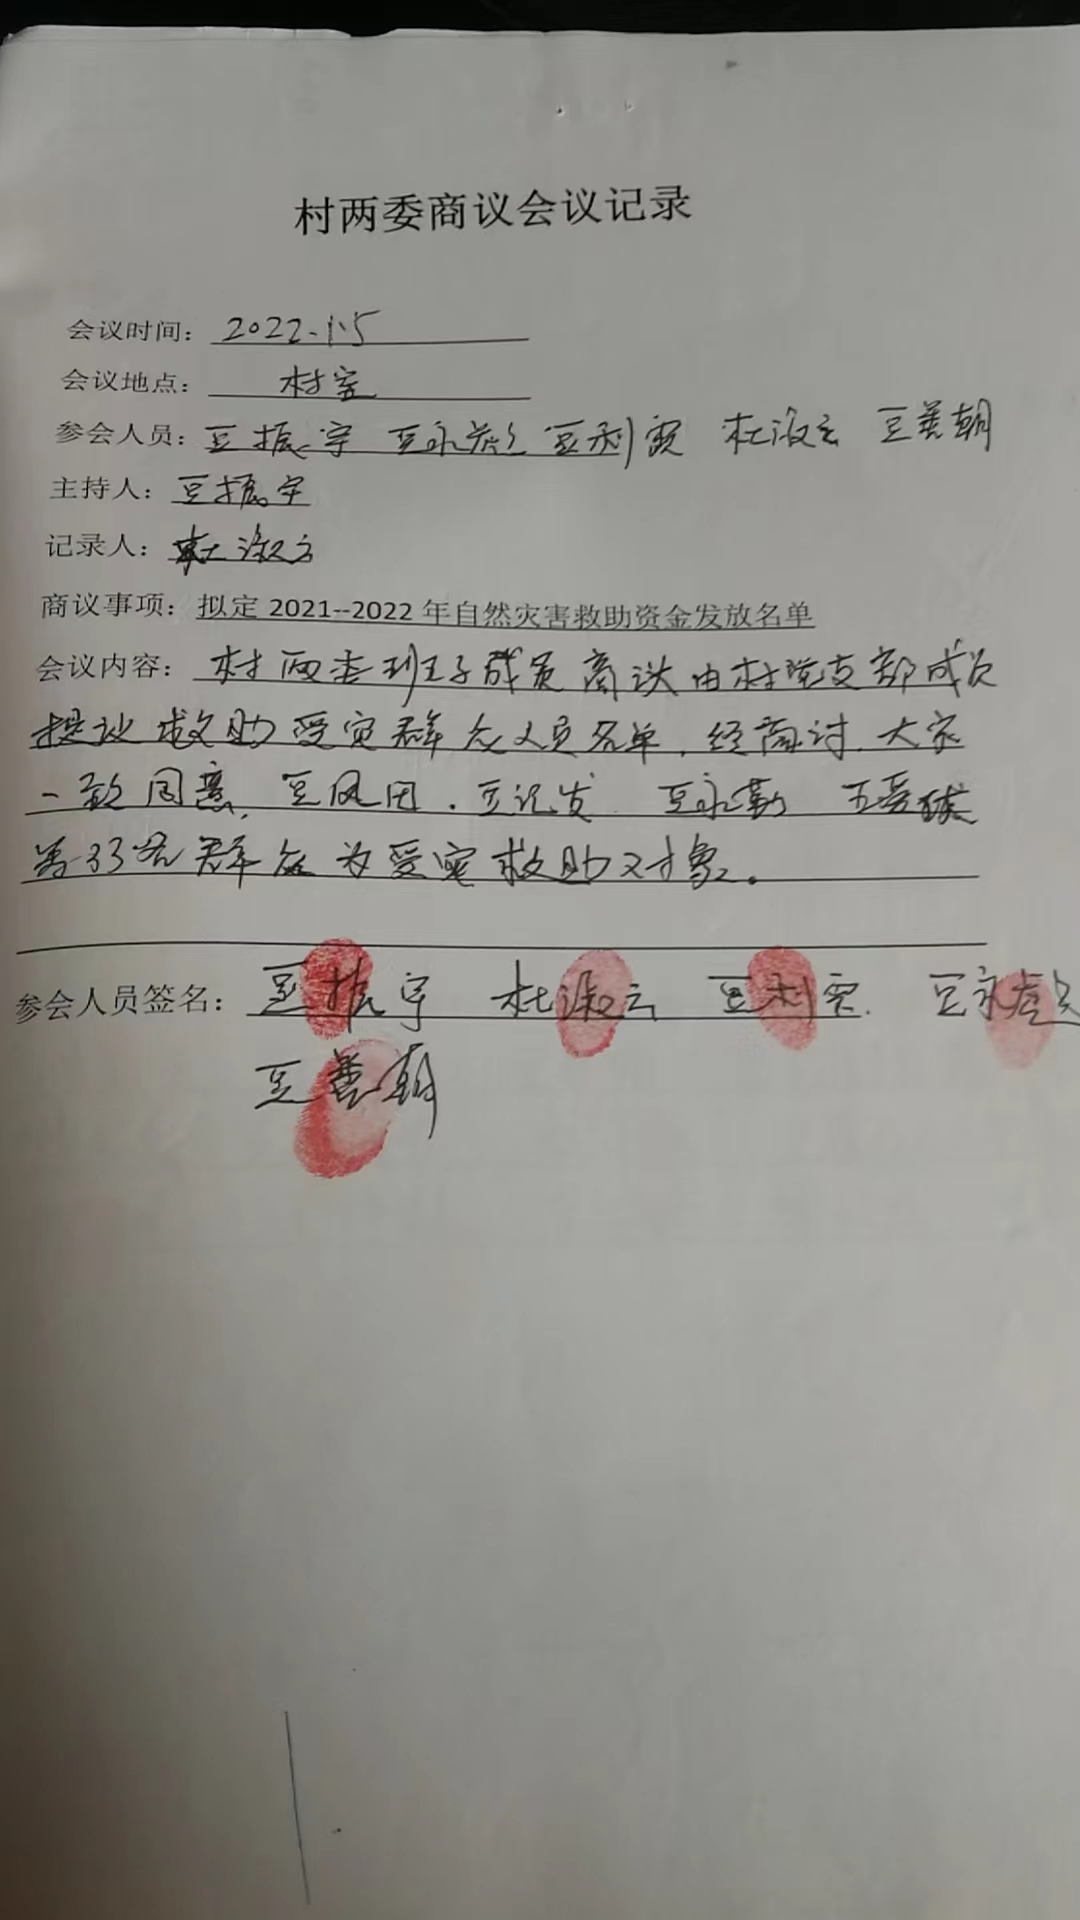 村两委商议会议记录
会议时间：2022.1.5
会议地点：村室
参会人员：豆振宇 豆永彪 豆利霞 杜淑云 豆善朝
主持人：豆振宇
记录人：杜淑云
商议事项：拟定 2021--2022 年自然灾害救助资金发放名单
会议内容：村两委班子成员商议由村党支部成员
提议救助受灾群众人员名单，经商讨，大家
一致同意，豆凤田．豆记发 豆永勤 王爱
等33名群众为受灾救助对象。
参会人员签名：豆振宇 杜淑云 豆利霞． 豆永彪
豆善朝